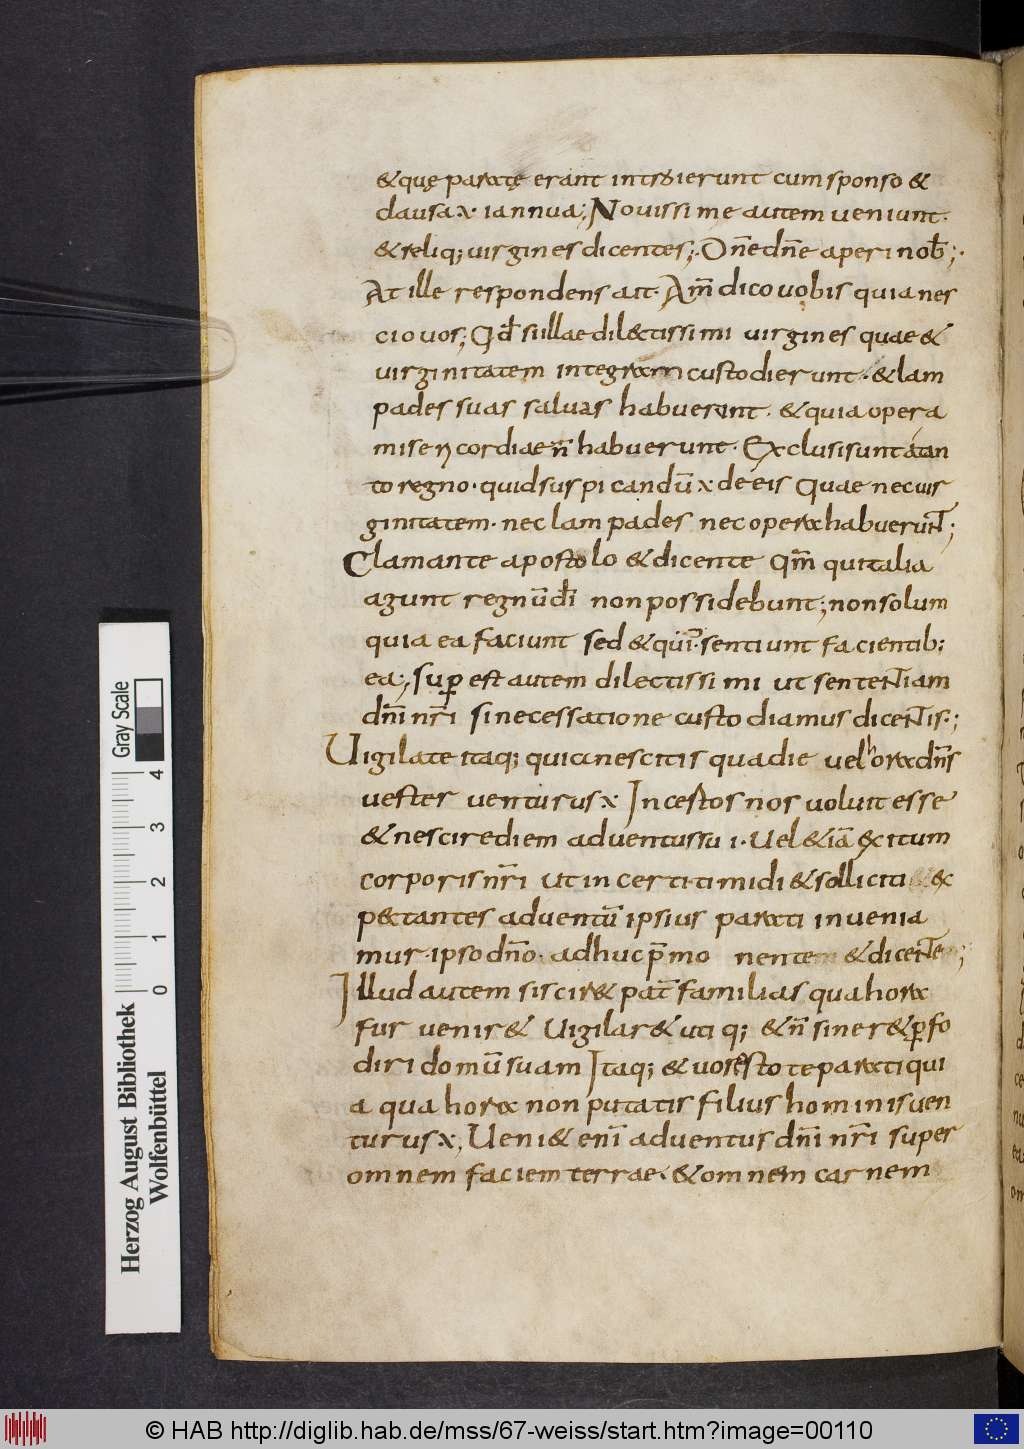 & quę paratę erant introierunt cum sponso &
clausa ÷ iannua; Novissime autem veniunt·
& reliq; virgines dicentes;· Dn̄e dn̄e aperi nob̄;·
At ille respondens ait· Am̄ dico vobis quia nes
cio vos; Qd̄ si illae dilectissimi virgines quae &
virginitatem integram custodierunt· & lam
pades suas salvas habuerunt· & quia opera
misericordiae n̄ habuerunt· Exclusi sunt a tan
to regno· quid suspicandū ÷ de eis Quae nec vir
ginitatem· nec lampades nec opera habuerunt;
Clamante apostolo & dicente qm̄ qui talia
agunt regnū dī non possidebunt; non solum
quia ea faciunt sed & qui ·sentiunt facientib;
ea; Supest autem dilectissimi ut sententiam
dn̄i nr̄i sine cessatione custodiamus dicentis·;
Vigilate itaq; quia nescitis qua die vel hora dn̄s
vester venturus ÷ Incestos nos voluit esse
& nescire diem adventus sui· Vel &iā exitum
corporis nr̄i Ut incerti timidi & solliciti ex
pectantes adventū ipsius parati invenia
mur· ipso dn̄o· adhuc p̄mo nente & dicente;
Illud autem scir& pat̄ familias qua hora
fur venir& Vigilar& uti q; & n̄ siner& pfo
diri domū suam Itaq; & vos estote parati qui
a qua hora non putatis filius hominis ven
turus ÷; Veni& enī adventus dn̄i nr̄i super
omnem faciem terrae· & omnem carnem
Gray Scale
0 1 2 3 4
Herzog August Bibliothek
Wolfenbüttel
© HAB http://diglib.hab.de/mss/67-weiss/start.htm?image=00110